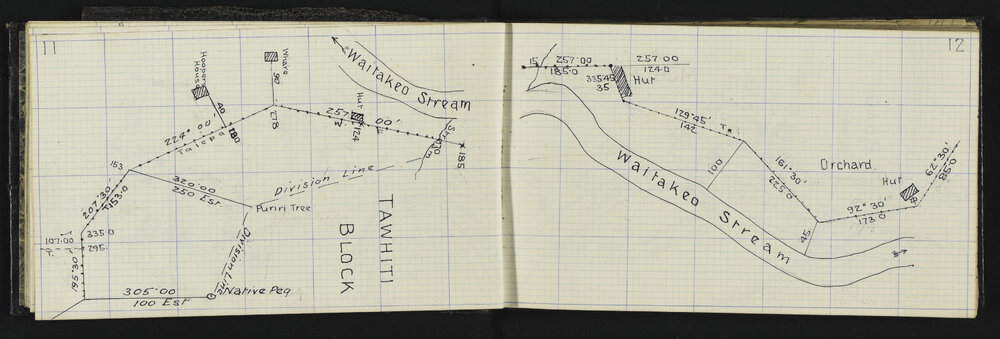 11
Hoopara's
House
Whare
90
40
180
278
224° 00'
Tatepa
Waitakeo Stream
257° 00'
Hut
124
Stream
170
185
153
320·00
250 Est
Division Line
Puriri Tree
207·30'
153·0
107·00
T.
335·0
295·
195·30'
305·00
100 Est
Native Peg
Division Line
TAWHITI
BLOCK
12
15
257·00
185·0
257·00
124·0
335·45
35
Hut
129°45'
142
100
Waitakeo Stream
161°30'
225·0
Orchard
Hut
8
62°30'
85·0
92° 30'
173·0
45